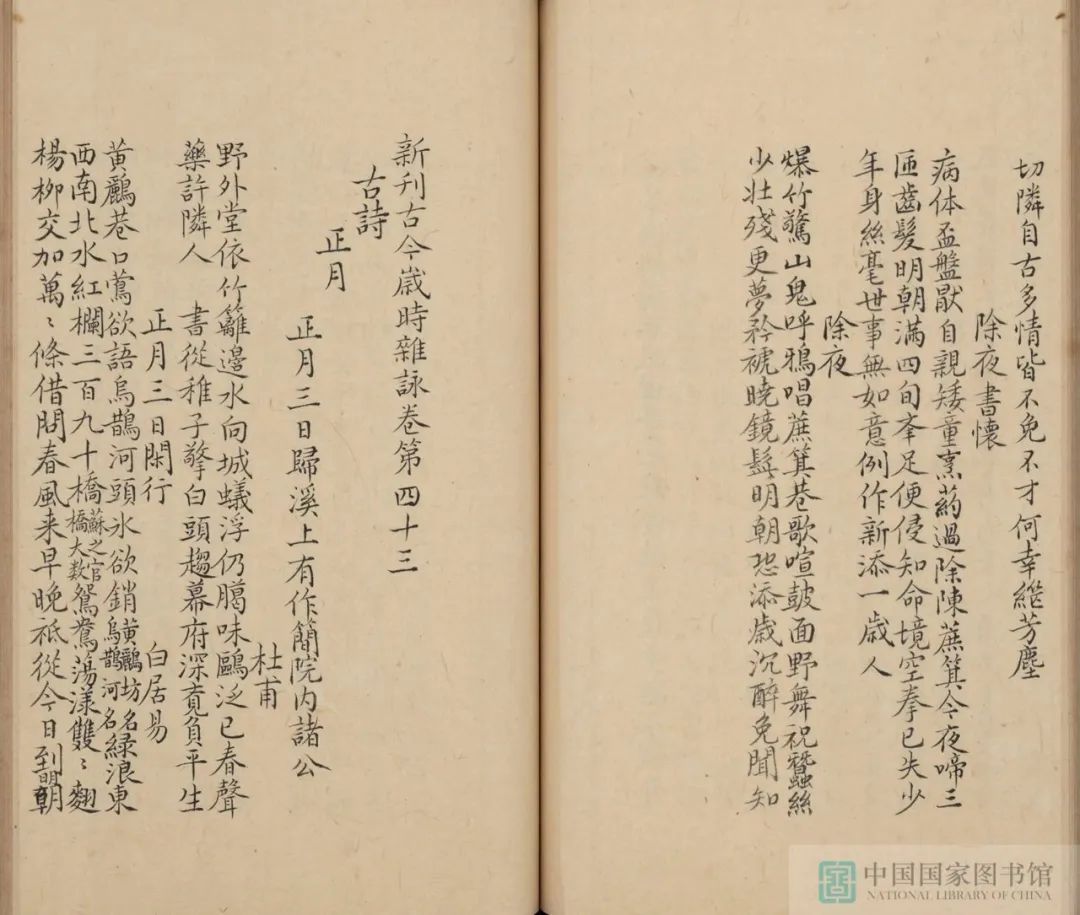 切隣自古多情皆不免不才何幸繼芳塵
除夜書懷
病体盃盤猒自親矮童烹葯過除陳蔴箕今夜啼三
匝齒髮明朝滿四旬夲足便侵知命境空拳已失少
年身絲毫世事無如意例作新添一歳人
除夜
爆竹驚山鬼呼鴉唱蔴箕巷歌喧皷面野舞祝蠶絲
少壮殘更夢衿裭曉鏡髭明朝恐添歳沉醉免聞知
新刊古今歳時雜詠卷第四十三
古詩
正月
正月三日歸溪上有作簡院内諸公
杜甫
野外堂依竹籬邊水向城蟻浮仍臈味鷗泛已春聲
藥許隣人 書從稚子擎白頭趨幕府深覔負平生
正月三日閑行
白居易
黄鸝巷口鶯欲語烏鵲河頭氷欲銷黄鸝坊名烏鵲河名緑浪東
西南北水紅欄三百九十橋蘇之官橋大数鴛鴦蕩漾雙〻翅
楊柳交加萬〻條借問春風来早晚祇從今日到明朝
中国国家图书馆
NATIONAL LIBRARY OF CHINA